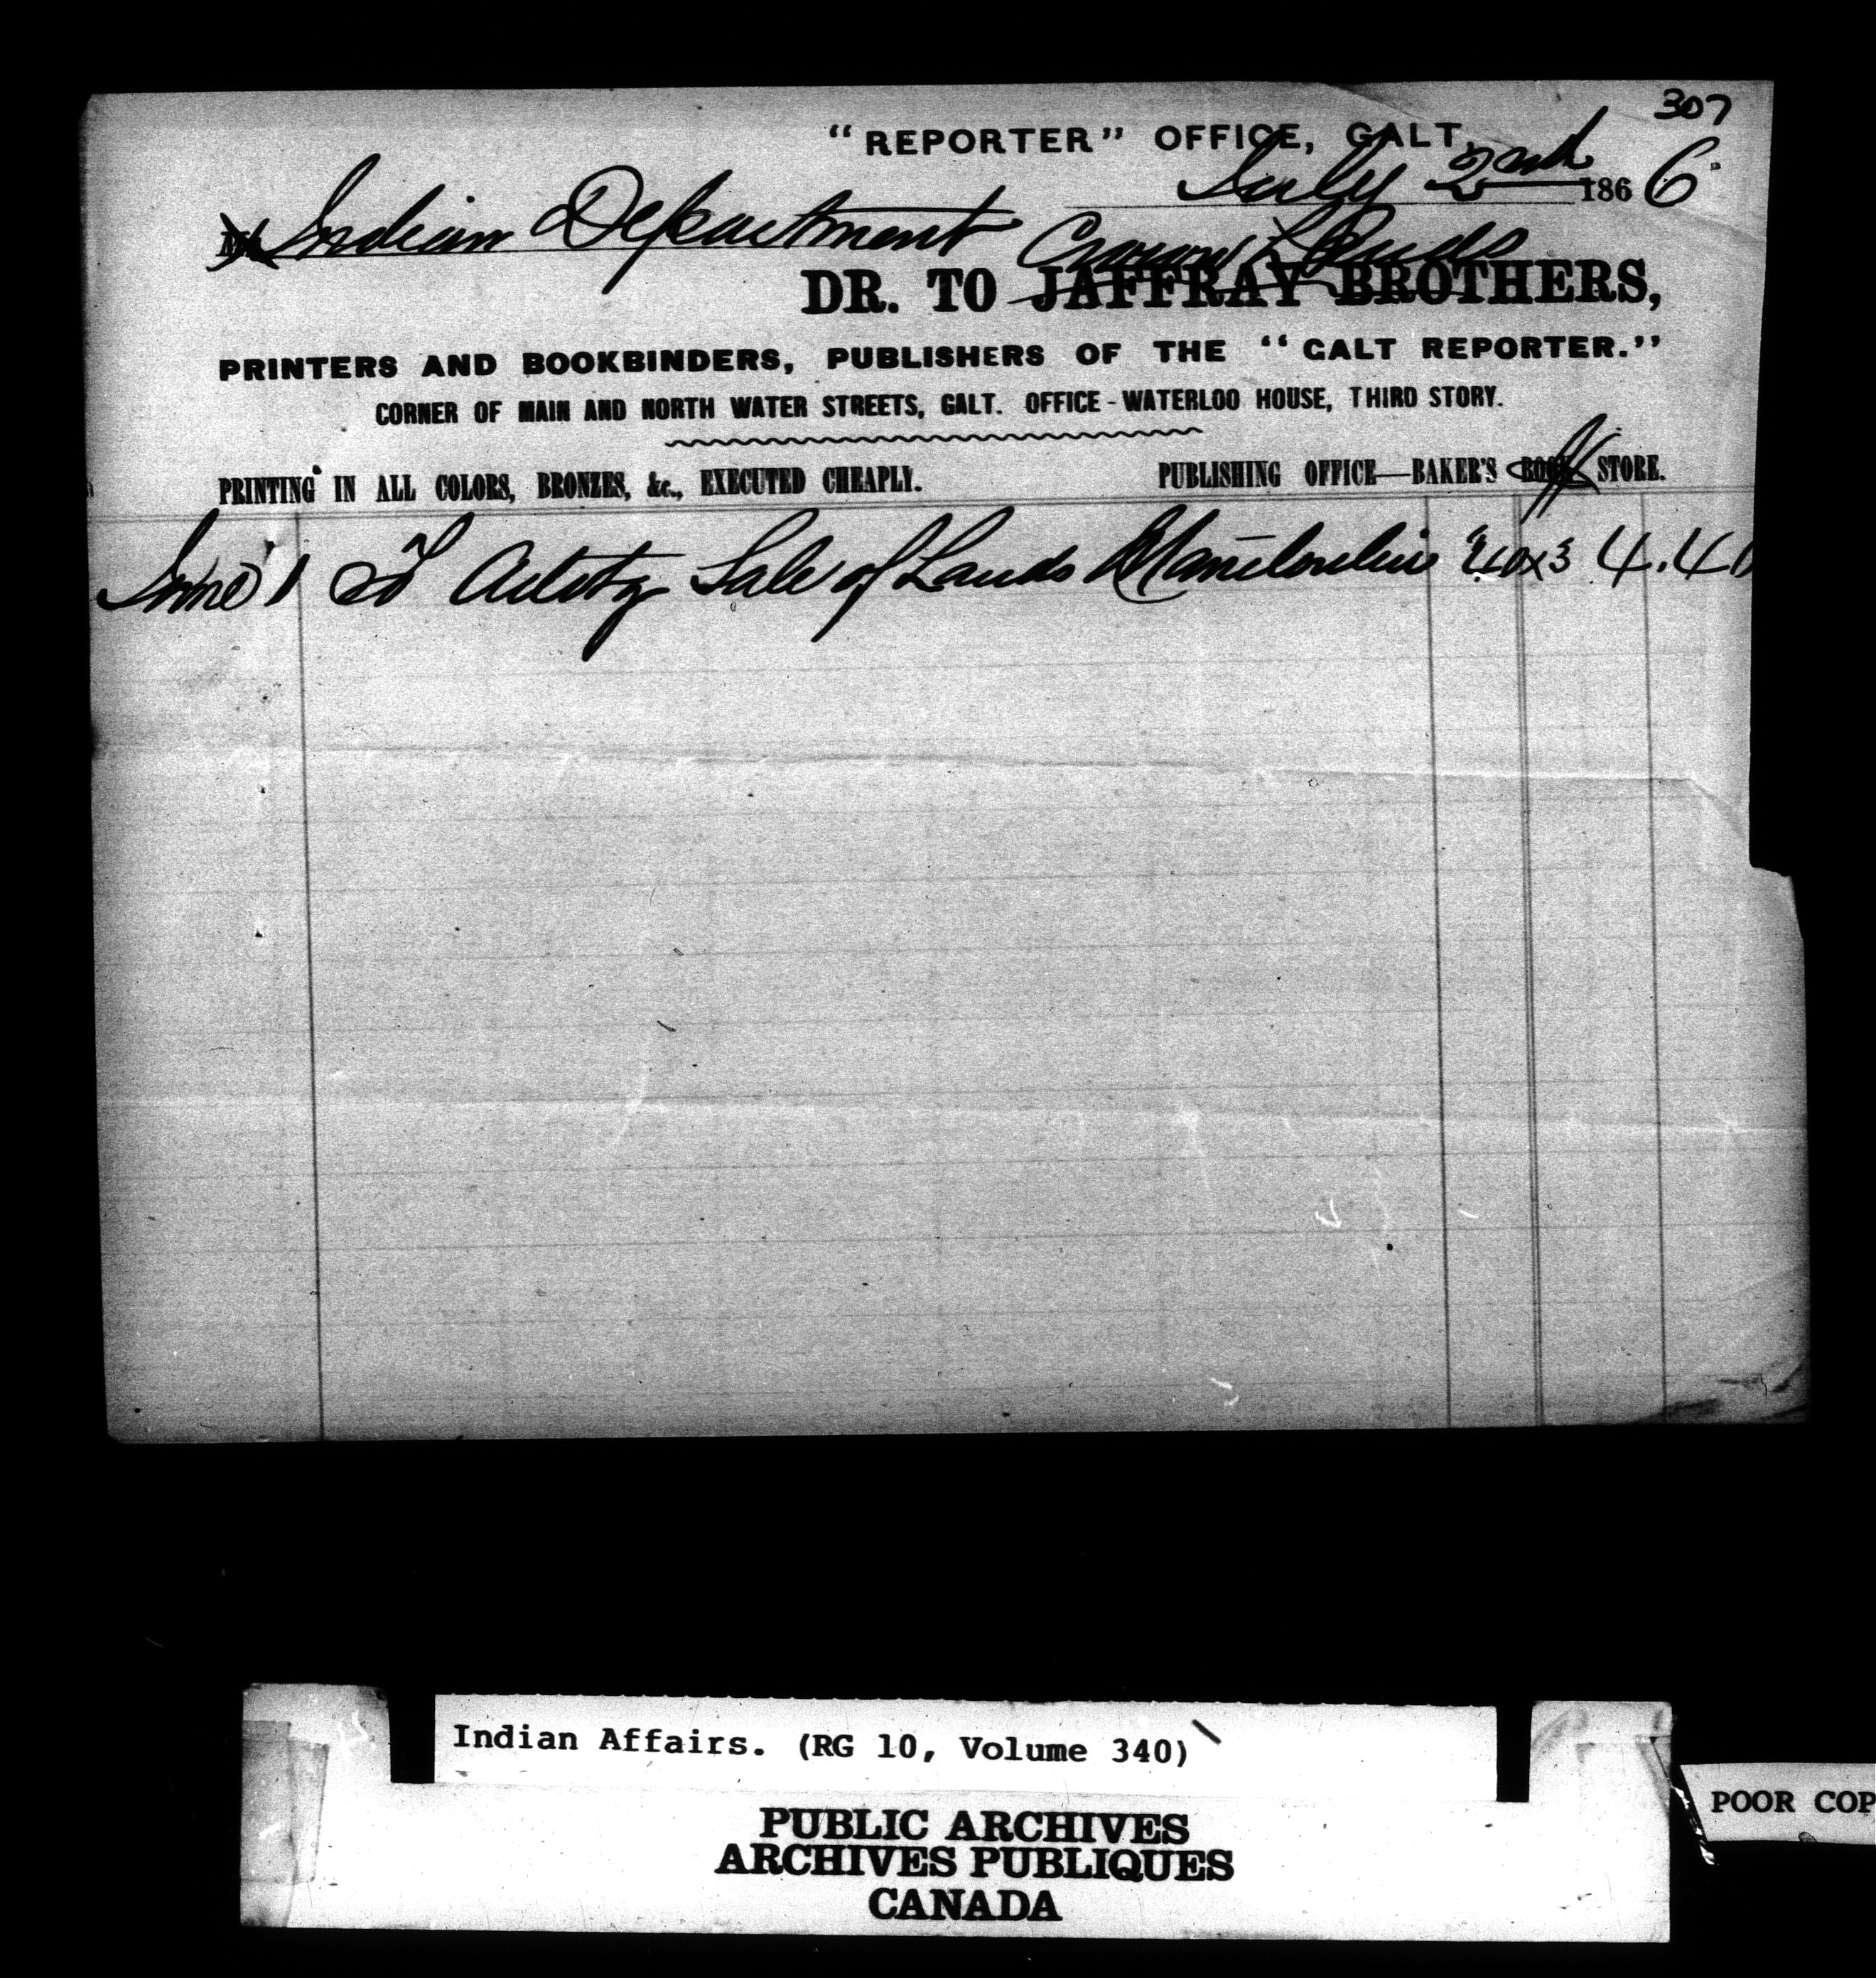 307
"REPORTER" OFFICE, GALT,
July 2nd 1866
Indian Department Crown Lands
DR. TO JAFFRAY BROTHERS,
PRINTERS AND BOOKBINDERS, PUBLISHERS OF THE "GALT REPORTER."
CORNER OF MAIN AND NORTH WATER STREETS, GALT. OFFICE - WATERLOO HOUSE, THIRD STORY.
PRINTING IN ALL COLORS, BRONZES, &c., EXECUTED CHEAPLY. PUBLISHING OFFICE—BAKER'S BOOK STORE.
June 1 To Advtg Sale of Lands Manitoulin 40x3 4.40
Indian Affairs. (RG 10, Volume 340)
PUBLIC ARCHIVES
ARCHIVES PUBLIQUES
CANADA
POOR COP